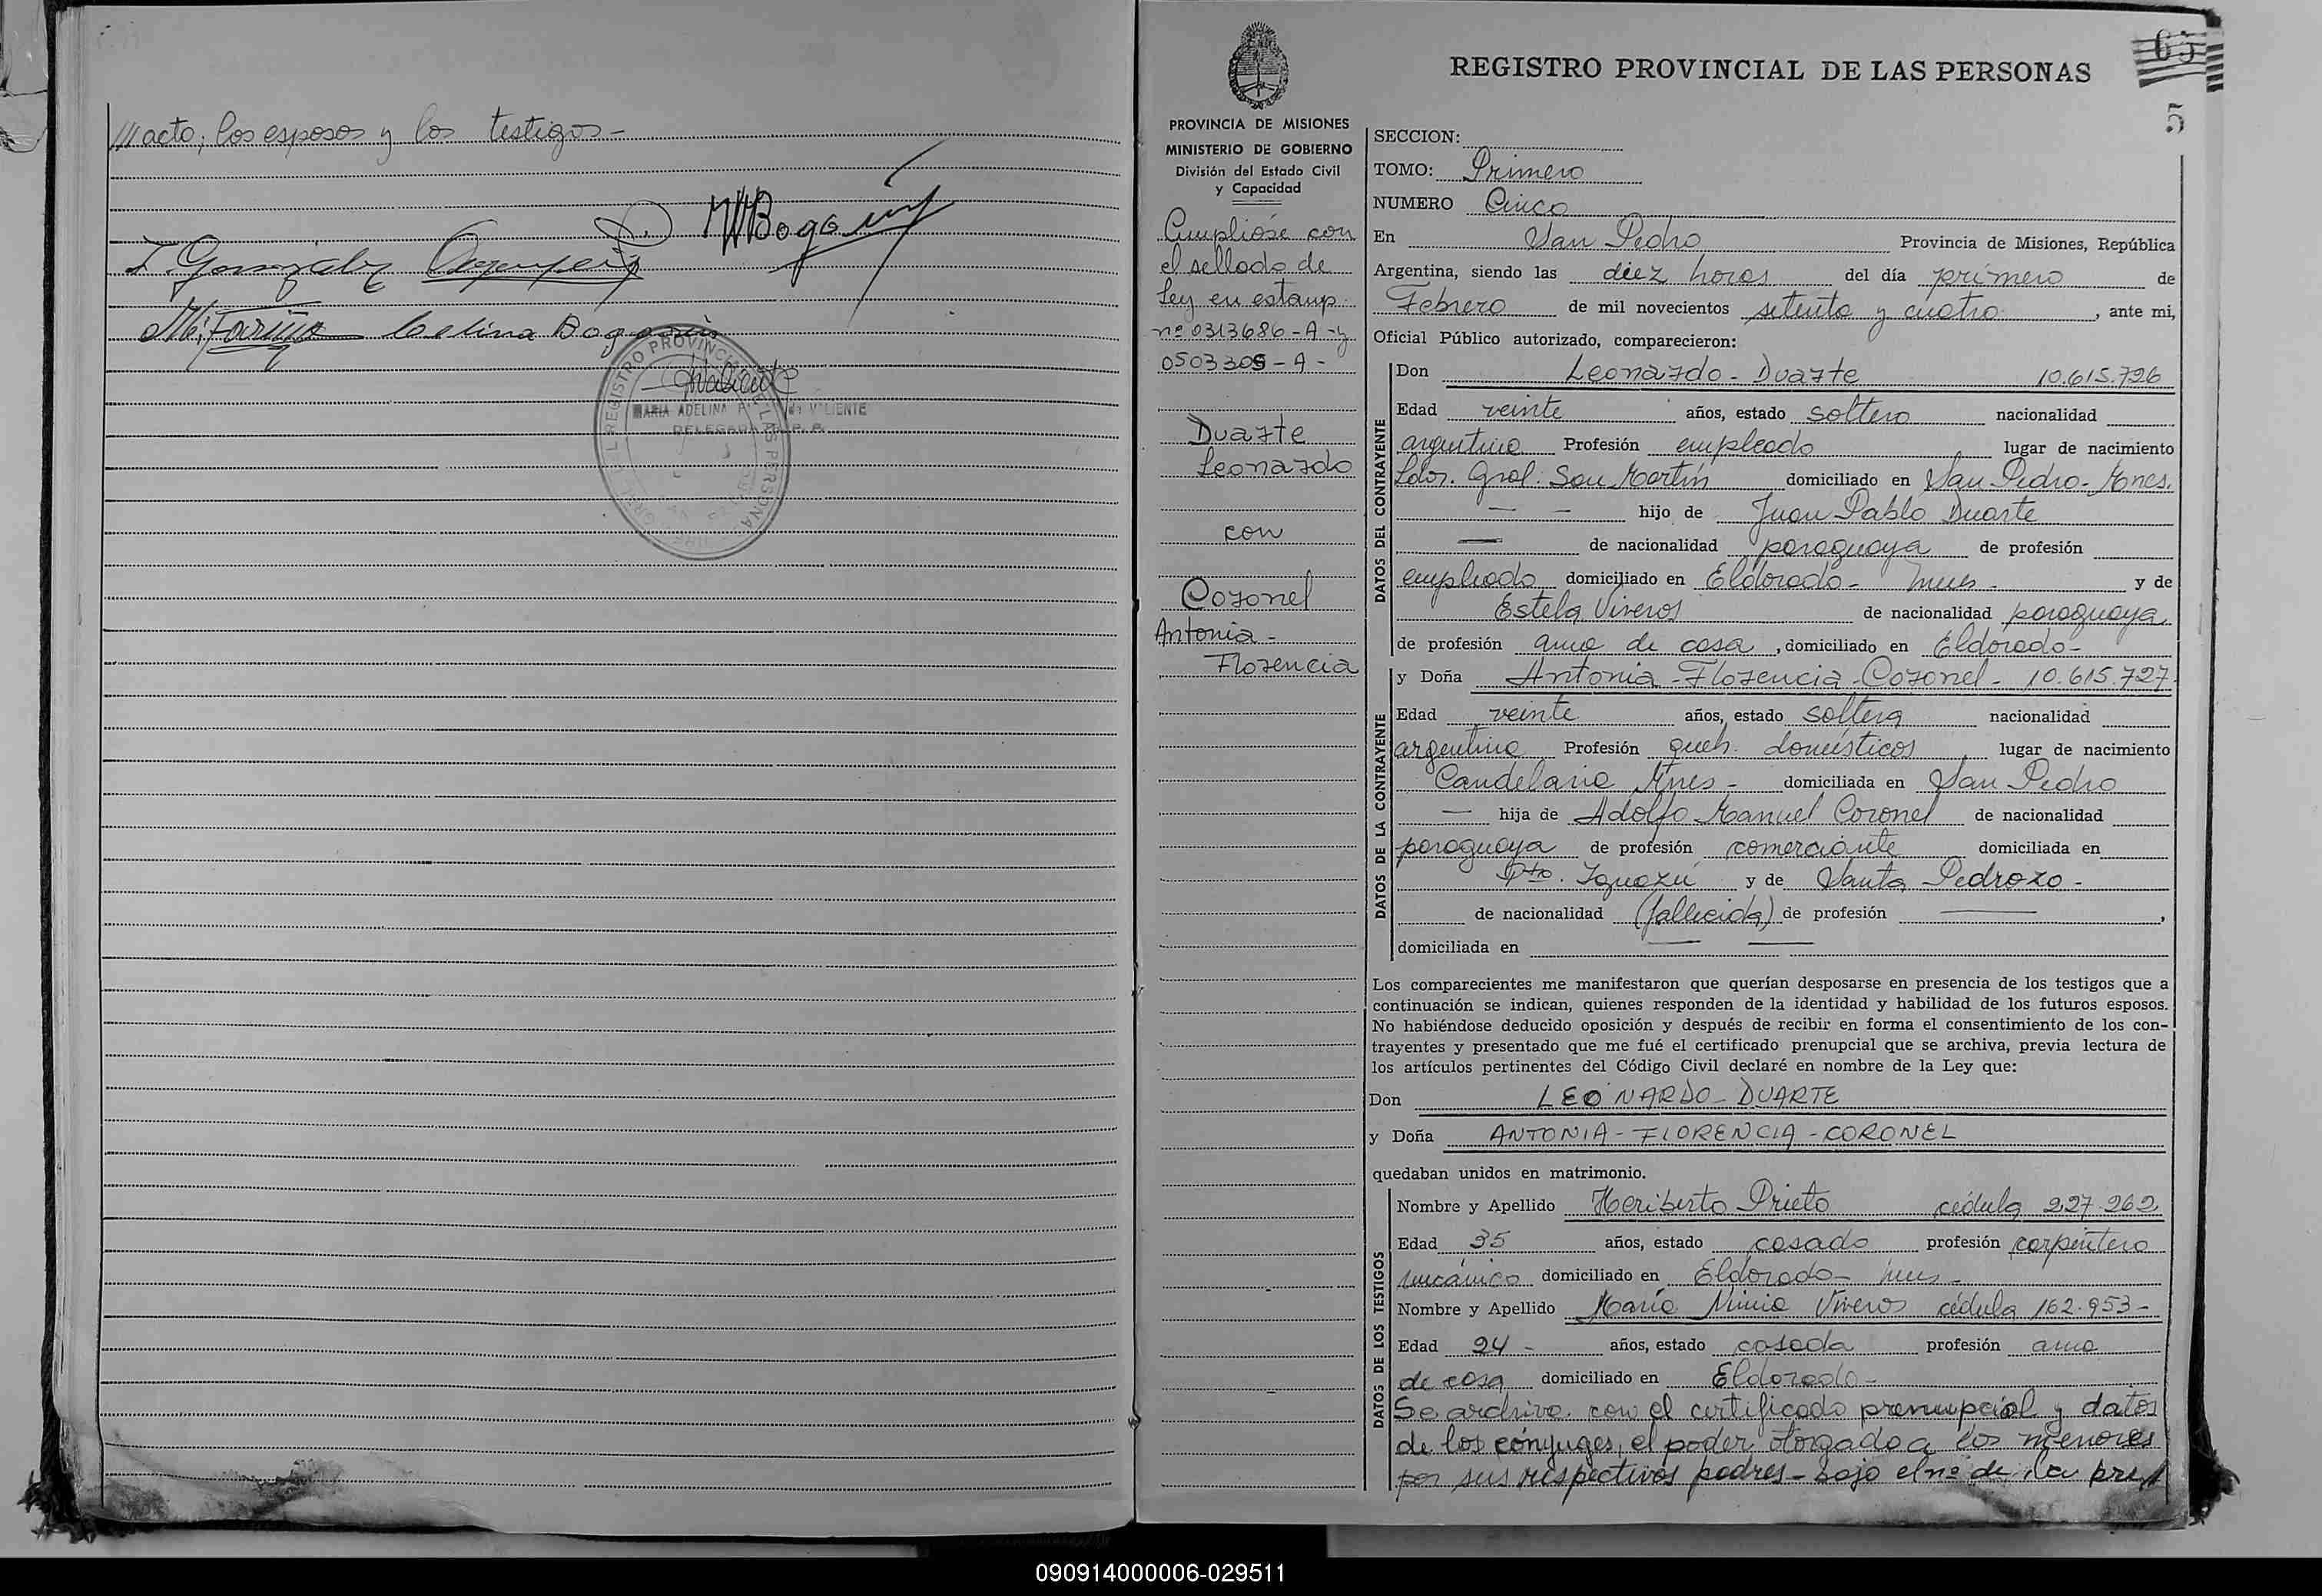 /// acto; los esposos y los testigos -
MBogarin
F. González
M. Fariña Celina Bogarin
REGISTRO PROVINCIAL DE LAS PERSONAS
MARIA ADELINA VALIENTE
DELEGADA R. P. P.
65
REGISTRO PROVINCIAL DE LAS PERSONAS
5
PROVINCIA DE MISIONES
MINISTERIO DE GOBIERNO
División del Estado Civil
y Capacidad
Cumplióse con
el sellado de
ley en estamp.
nº 0313686-A-y
0503305-A-
Duarte
Leonardo
con
Coronel
Antonia -
Florencia
SECCION:
TOMO: Primero
NUMERO Cinco
En San Pedro Provincia de Misiones, República
Argentina, siendo las diez horas del día primero de
Febrero de mil novecientos setenta y cuatro, ante mi,
Oficial Público autorizado, comparecieron:
DATOS DEL CONTRAYENTE
Don Leonardo - Duarte 10.615.726
Edad veinte años, estado soltero nacionalidad
argentino Profesión empleado lugar de nacimiento
Ldor. Gral. San Martín domiciliado en San Pedro - Mnes.
— — hijo de Juan Pablo Duarte
— de nacionalidad paraguaya de profesión
empleado domiciliado en Eldorado - Mnes - y de
Estela Viveros de nacionalidad paraguaya
de profesión ama de casa, domiciliado en Eldorado -
DATOS DE LA CONTRAYENTE
y Doña Antonia - Florencia - Coronel - 10.615.727
Edad veinte años, estado soltera nacionalidad
argentina Profesión queh. domésticos lugar de nacimiento
Candelaria Mnes - domiciliada en San Pedro
— hija de Adolfo Manuel Coronel de nacionalidad
paraguaya de profesión comerciante domiciliada en
Pto. Iguazú y de Santa Pedrozo -
de nacionalidad (fallecida) de profesión —,
domiciliada en — —
Los comparecientes me manifestaron que querían desposarse en presencia de los testigos que a
continuación se indican, quienes responden de la identidad y habilidad de los futuros esposos.
No habiéndose deducido oposición y después de recibir en forma el consentimiento de los con-
trayentes y presentado que me fué el certificado prenupcial que se archiva, previa lectura de
los artículos pertinentes del Código Civil declaré en nombre de la Ley que:
Don LEONARDO - DUARTE
y Doña ANTONIA - FLORENCIA - CORONEL
quedaban unidos en matrimonio.
DATOS DE LOS TESTIGOS
Nombre y Apellido Heriberto Prieto cédula 227.262
Edad 35 años, estado casado profesión carpintero
mecánico domiciliado en Eldorado - Mnes -
Nombre y Apellido María Viveros cédula 162.953 -
Edad 24 - años, estado casada profesión ama
de casa domiciliado en Eldorado -
Se archiva con el certificado prenupcial y datos
de los cónyuges, el poder otorgado a los menores
por sus respectivos padres - bajo el nº de la pres
090914000006-029511